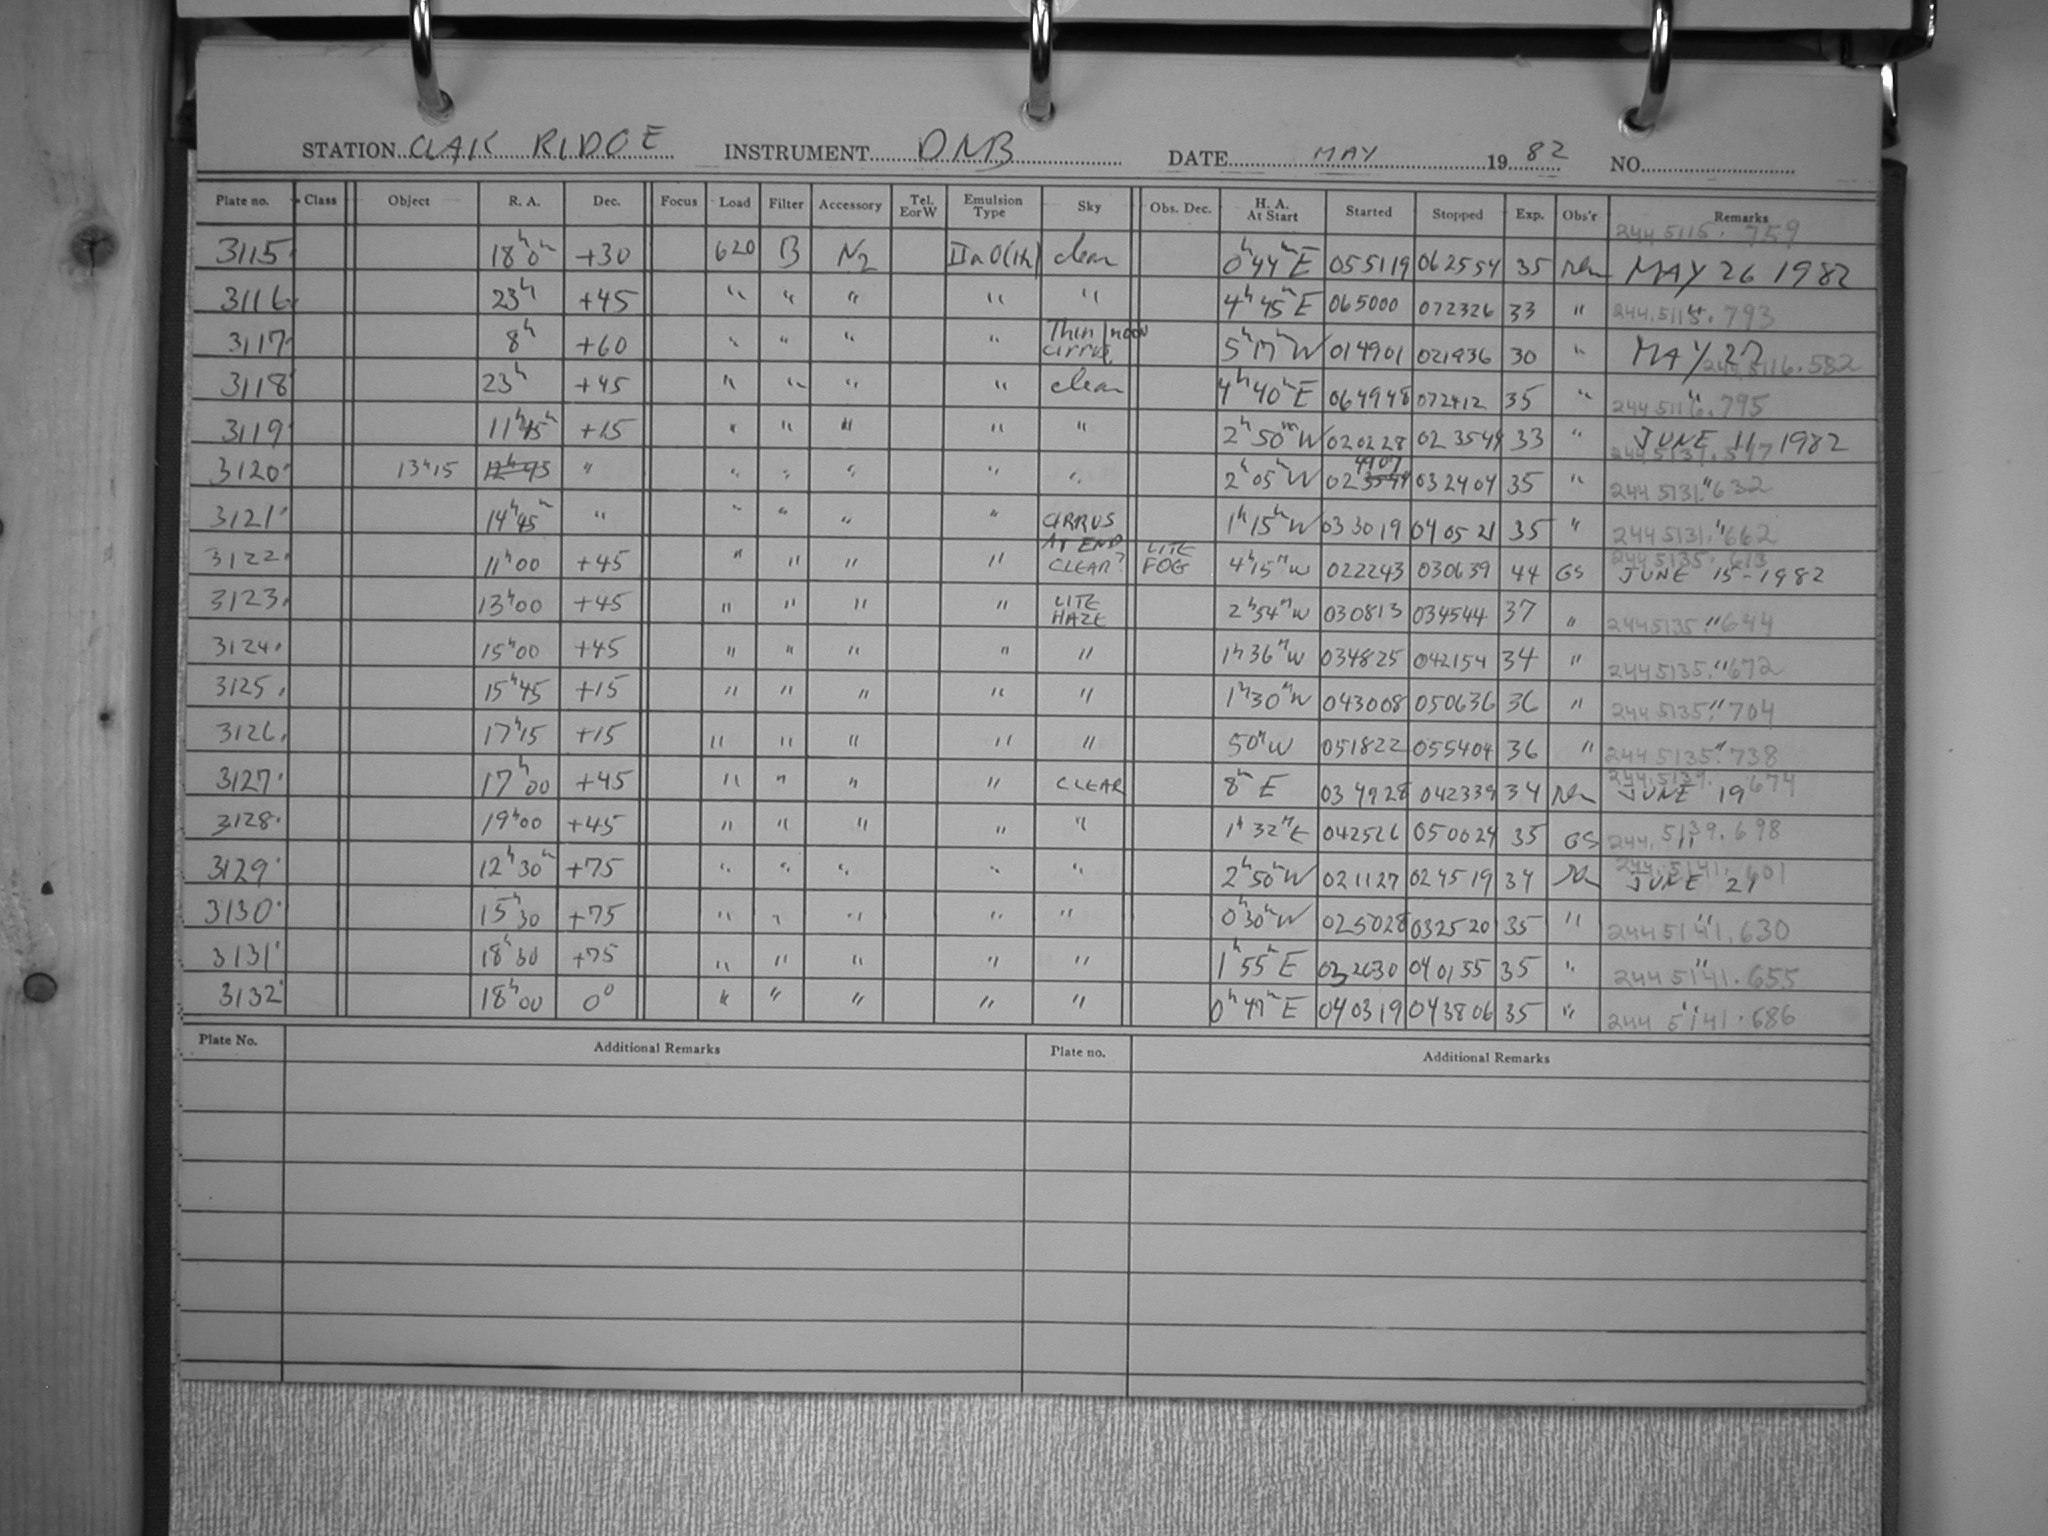 STATION OAK RIDGE INSTRUMENT DNB DATE MAY 19 82 NO.
Plate no. Class Object R. A. Dec. Focus Load Filter Accessory Tel. EorW Emulsion Type Sky Obs. Dec. H. A. At Start Started Stopped Exp. Obs'r Remarks
244 5115. 759
3115 18h 0m +30 620 B N2 IIaO(1h) clear 0h44m E 055119 062554 35 MAY 26 1982
3116 23h +45 " " " " " 4h45m E 065000 072326 33 " 244 5115. 793
3117 8h +60 " " " " Thin cirrus, moon 5h17m W 014901 021936 30 " MAY 27 244 5116.582
3118 23h +45 " " " " clear 4h40m E 064948 072412 35 " " 244 5116.795
3119 11h45m +15 " " " " " 2h50m W 020228 023549 33 " JUNE 11, 1982
3120 13h15 12h45 " " " " " " 2h05m W 024907 032404 35 " " 244 5131.632
3121 14h45m " " " " " CIRRUS AT END 1h15m W 033019 040521 35 " " 244 5131.662
3122 11h00 +45 " " " " CLEAR? LITE FOG 4h15m W 022243 030639 44 GS 244 5135.613 JUNE 15-1982
3123 13h00 +45 " " " " LITE HAZE 2h54m W 030813 034544 37 " " 244 5135.644
3124 15h00 +45 " " " " " 1h36m W 034825 042154 34 " " 244 5135.672
3125 15h45 +15 " " " " " 1h30m W 043008 050636 36 " " 244 5135.704
3126 17h15 +15 " " " " " 50m W 051822 055404 36 " " 244 5135.738
3127 17h00 +45 " " " " CLEAR 8m E 034928 042339 34 244 5139.674 JUNE 19
3128 19h00 +45 " " " " " 1h32m E 042526 050024 35 GS " 244 5139.698
3129 12h30m +75 " " " " " 2h50m W 021127 024519 34 244 5141.601 JUNE 21
3130 15h30 +75 " " " " " 0h30m W 025028 032520 35 " " 244 5141.630
3131 18h30 +75 " " " " " 1h55m E 032630 040155 35 " " 244 5141.655
3132 18h00 0° " " " " " 0h49m E 040319 043806 35 " " 244 5141.686
Plate No. Additional Remarks Plate no. Additional Remarks